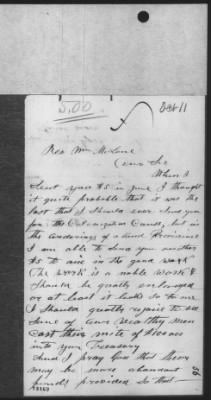 5.00
Oct 11
Rev Wm McLain
Dear Sir
When I
Sent your $5 in June I thought
it quite probable that it was the
last that I should ever send you
for the Colonization Cause, but in
the tenderings of a kind Providence
I am able to send you another
$5 to aid in the good work
The work is a noble work &
Should be greatly enlarged
or at least it looks so to me
I Should greatly rejoice to see
Some of our Wealthy men
Cast their mite of Tens
into your Treasury
And I pray God that there
may be more abundant
funds provided so that